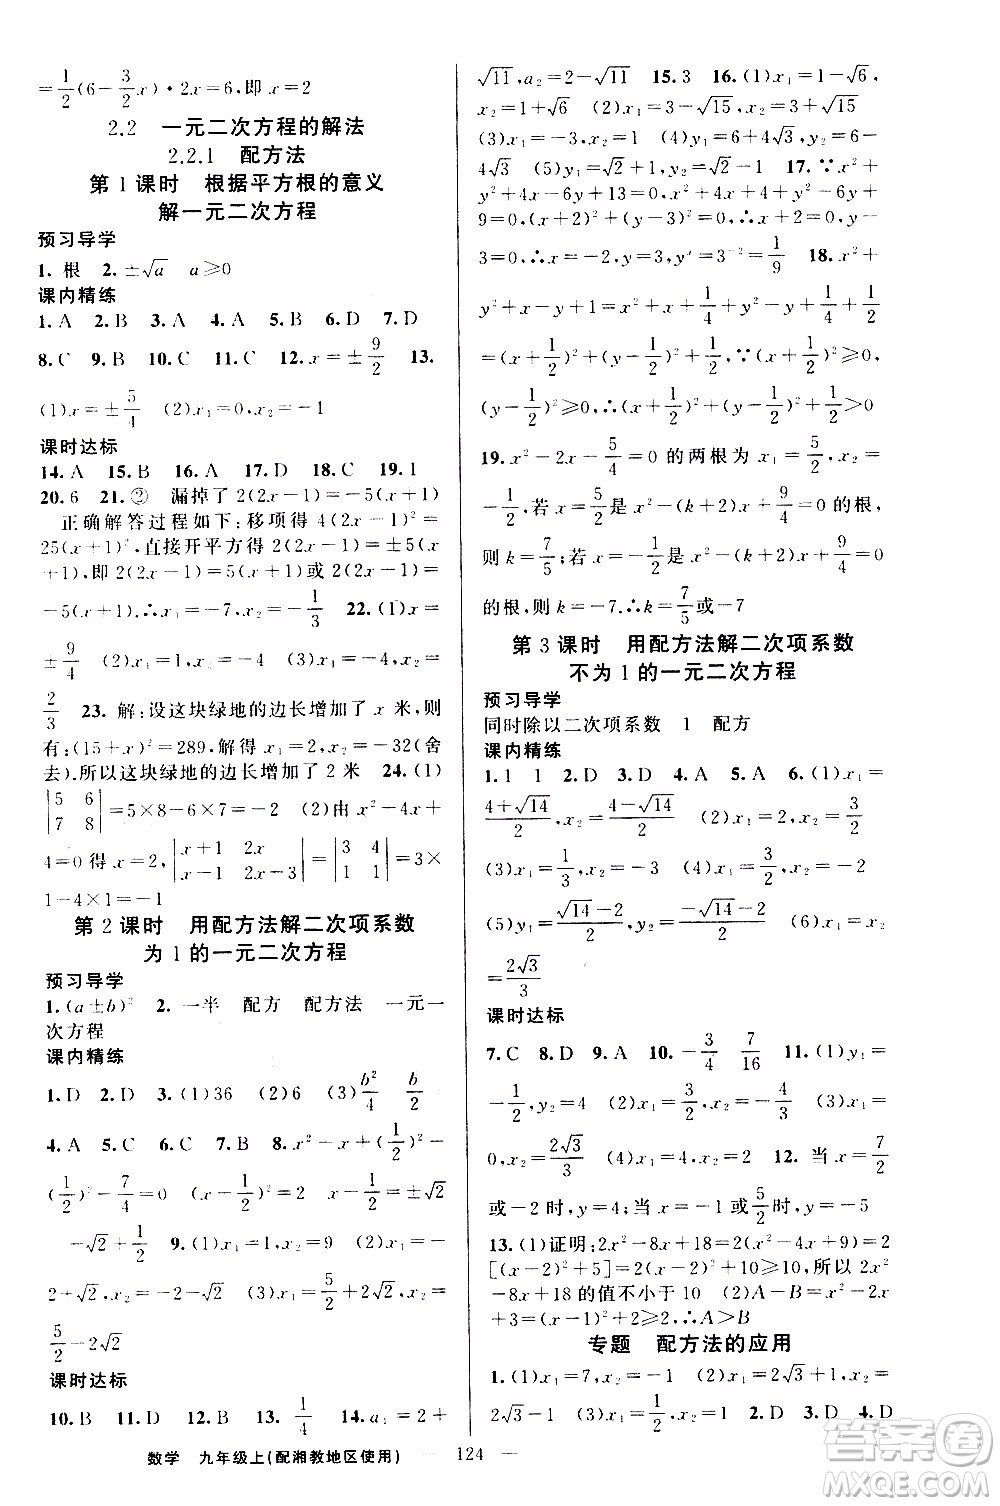 =1/2(6-3/2x)·2x=6,即x=2
2.2 一元二次方程的解法
2.2.1 配方法
第1课时 根据平方根的意义
解一元二次方程
预习导学
1. 根 2. ±√a a≥0
课内精练
1. A 2. B 3. A 4. A 5. B 6. D 7. D
8. C 9. B 10. C 11. C 12. x=±9/2 13.
(1)x=±5/4 (2)x₁=0,x₂=-1
课时达标
14. A 15. B 16. A 17. D 18. C 19. 1
20. 6 21. ② 漏掉了2(2x-1)=-5(x+1)
正确解答过程如下:移项得4(2x-1)²=
25(x+1)²,直接开平方得2(2x-1)=±5(x
+1),即2(2x-1)=5(x+1)或2(2x-1)=
-5(x+1).∴x₁=-7,x₂=-1/3 22. (1)x=
±9/4 (2)x₁=1,x₂=-4 (3)x₁=4,x₂=
2/3 23. 解:设这块绿地的边长增加了x米,则
有:(15+x)²=289,解得x₁=2,x₂=-32(舍
去).所以这块绿地的边长增加了2米 24. (1)
|5 6; 7 8|=5×8-6×7=-2 (2)由x²-4x+
4=0得x=2,|x+1 2x; x-1 2x-3|=|3 4; 1 1|=3×
1-4×1=-1
第2课时 用配方法解二次项系数
为1的一元二次方程
预习导学
1. (a±b)² 2. 一半 配方 配方法 一元一
次方程
课内精练
1. D 2. D 3. (1)36 (2)6 (3)b²/4 b/2
4. A 5. C 6. C 7. B 8. x²-x+(1/2)²-
(1/2)²-7/4=0 (x-1/2)²=2 x-1/2=±√2
-√2+1/2 9. (1)x₁=1,x₂=-3 (2)x₁=
2+√2,x₂=2-√2 (3)x₁=5/2+2√2,x₂=
5/2-2√2
课时达标
10. B 11. B 12. A 13. 1/4 14. a₁=2+
√11,a₂=2-√11 15. 3 16. (1)x₁=1-√6,
x₂=1+√6 (2)x₁=3-√15,x₂=3+√15
(3)x₁=-1,x₂=3 (4)x₁=6+4√3,x₂=6-
4√3 (5)x₁=√2,x₂=√2-1 17. ∵x²+
y²+6x-2y+10=0,∴x²+6x+1+y²-2y+
9=0,(x+3)²+(y-1)²=0,∴x+3=0,y-
3=0,∴x=-3,y=1,∴xʸ=3⁻²=1/9 18. x²+
y²+x-y+1=x²+x+1/4+1/4+y²-y+1/2
=(x+1/2)²+(y-1/2)²+1/2,∵(x+1/2)²≥0,
(y-1/2)²≥0,∴(x+1/2)²+(y-1/2)²+1/2>0
19. x²-2x-5/4=0的两根为x₁=5/2,x₂=
-1/2,若x=5/2是x²-(k+2)x+9/4=0的根,
则k=7/5;若x=-1/2是x²-(k+2)x+9/4=0
的根,则k=-7.∴k=7/5或-7
第3课时 用配方法解二次项系数
不为1的一元二次方程
预习导学
同时除以二次项系数 1 配方
课内精练
1. 1 1 2. D 3. D 4. A 5. A 6. (1)x₁=
(4+√14)/2,x₂=(4-√14)/2 (2)x₁=2,x₂=-1
(3)x₁=1/2,x₂=-3 (4)x₁=2,x₂=-1/2
(5)y₁=(√14-2)/2,y₂=(-√14-2)/2 (6)x₁=x₂
=2√3/3
课时达标
7. C 8. D 9. A 10. -3/4 7/16 11. (1)y₁=
-1/2,y₂=4 (2)x₁=3/2,x₂=-1/2 (3)x₁=
0,x₂=2√3/3 (4)x₁=4,x₂=2 12. 当x=7/2
或-2时,y=4;当x=1或x=5/2时,y=-5
13. (1)证明:2x²-8x+18=2(x²-4x+9)=2
[(x-2)²+5]=2(x-2)²+10≥10,所以2x²
-8x+18的值不小于10 (2)A-B=x²-2x
+3=(x-1)²+2≥2,∴A>B
专题 配方法的应用
1. (1)x₁=7,x₂=-1 (2)x₁=2√3+1,x₂=
2√3-1 2. B 3. D 4. 3 5. (1)∵x²-4x+
数学 九年级上(配湘教地区使用) — 124 —
答案圈
MXQE.COM